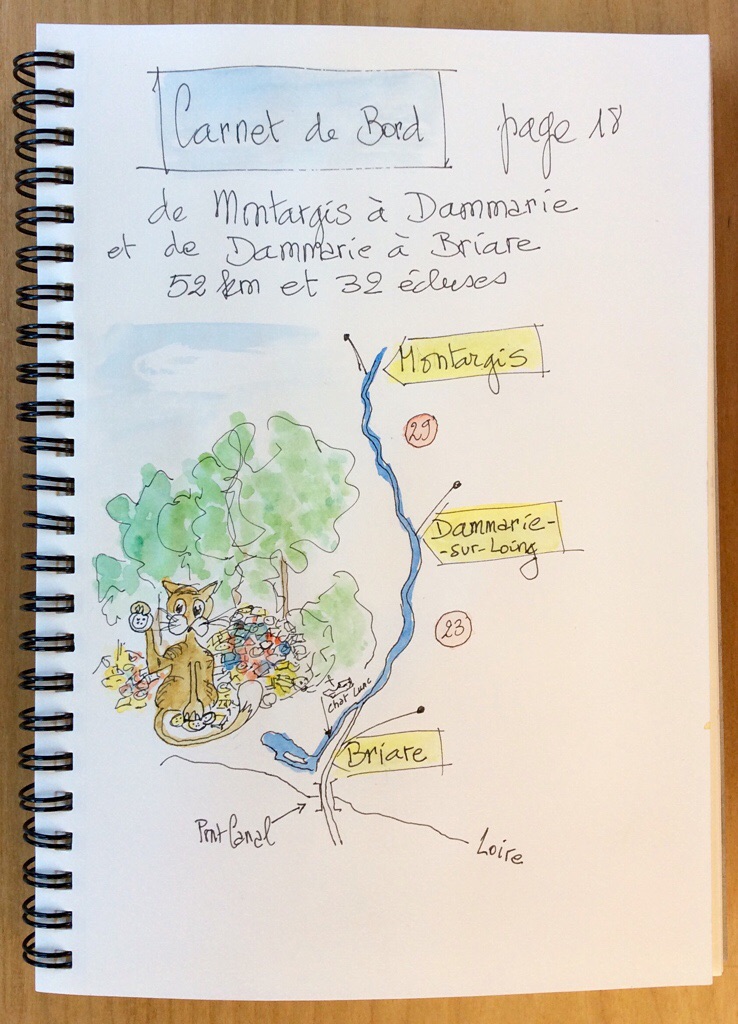 Carnet de Bord
page 18
de Montargis à Dammarie
et de Dammarie à Briare
52 km et 32 écluses
Montargis
29
Dammarie-
-sur-Loing
23
chat Lune
Briare
Pont Canal
Loire